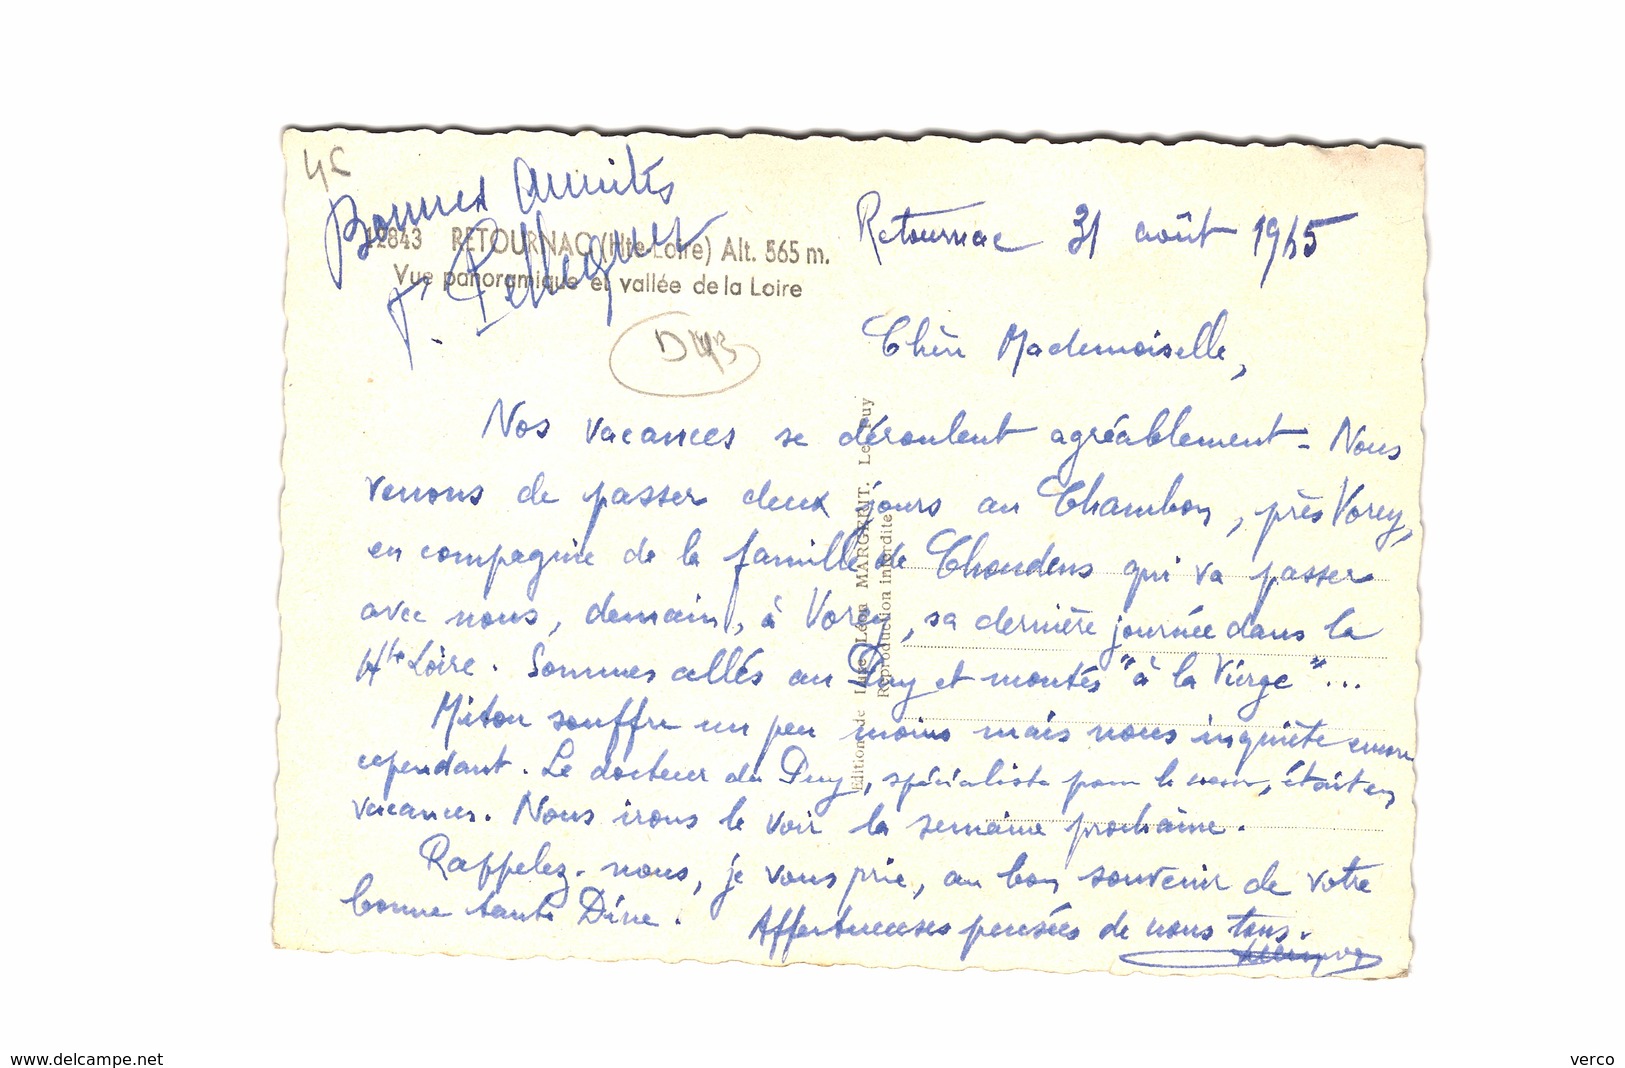 4€
Bonnes Amitiés
12843 RETOURNAC (Hte-Loire) Alt. 565 m.
Vue panoramique et vallée de la Loire
D43
Retournac 31 août 1965
Chère Mademoiselle,
Nos vacances se déroulent agréablement - Nous
venons de passer deux jours au Chambon, près Vorey,
en compagnie de la famille de Choudens qui va passer
avec nous, demain, à Vorey, sa dernière journée dans la
Hte Loire. Sommes allés au Puy et montés "à la Vierge"...
Miton souffre un peu moins mais nous inquiète encore
cependant. Le docteur du Puy, spécialiste pour le coeur, était en
vacances. Nous irons le voir la semaine prochaine.
Rappelez-nous, je vous prie, au bon souvenir de votre
bonne tante Dine. Affectueuses pensées de nous tous.
Editions de Luxe Léon MARGERIT. Le Puy
Reproduction interdite
www.delcampe.net
verco